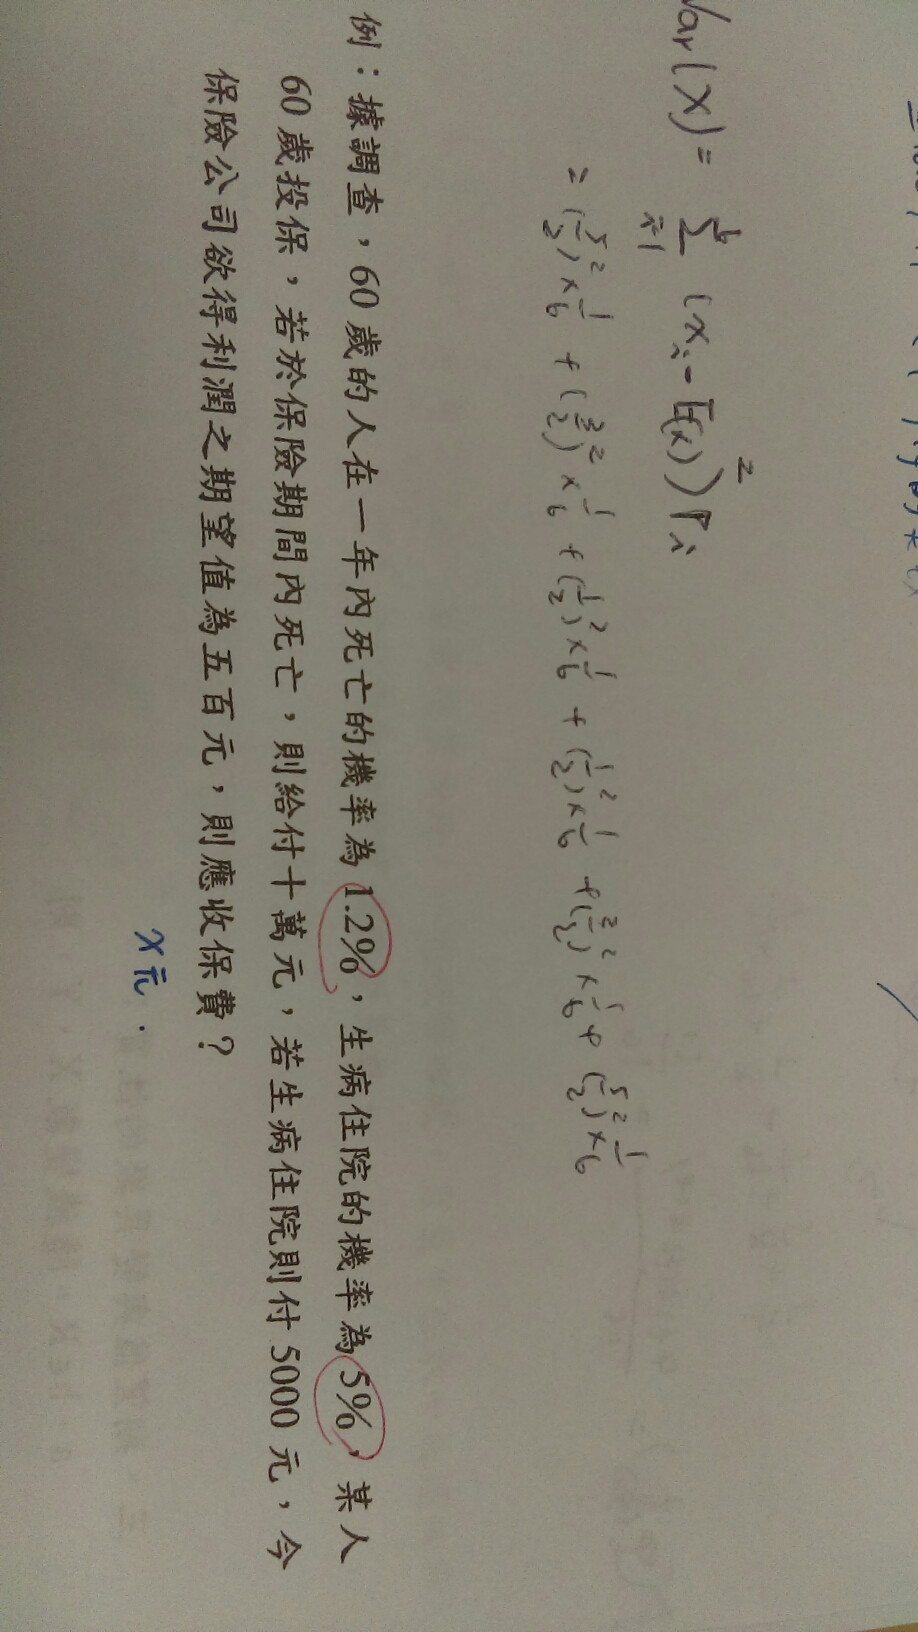 Var(X) = 6Σi=1 (xi - E(x))² Pi
= (5/2)² × 1/6 + (3/2)² × 1/6 + (1/2)² × 1/6 + (1/2)² × 1/6 + (3/2)² × 1/6 + (5/2)² × 1/6
例：據調查，60 歲的人在一年內死亡的機率為 1.2%，生病住院的機率為 5%，某人
60 歲投保，若於保險期間內死亡，則給付十萬元，若生病住院則付 5000 元，今
保險公司欲得利潤之期望值為五百元，則應收保費？
x元.